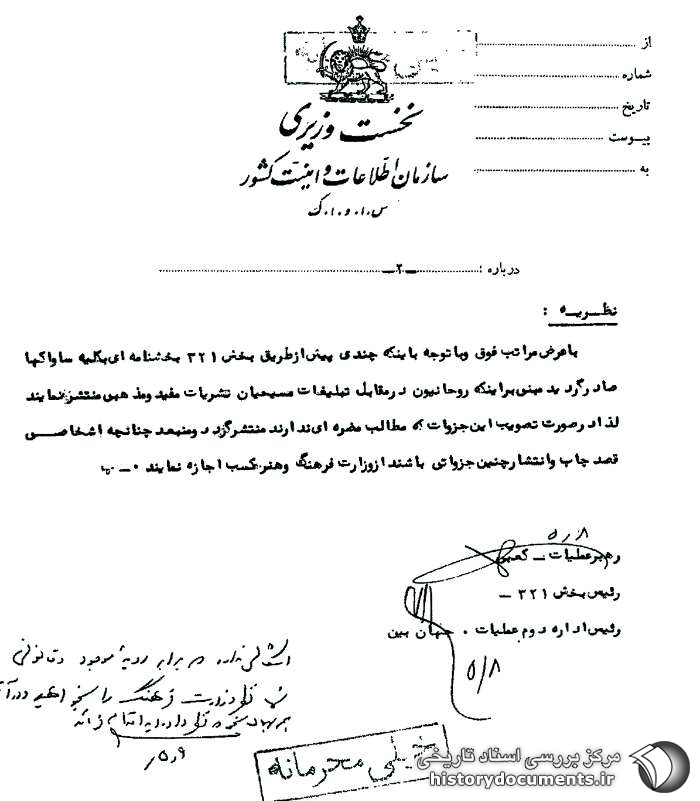 از
شماره
تاریخ
پیوست
به
نخست وزیری
سازمان اطلاعات و امنیت کشور
س.ا.و.ا.ک
درباره : ـ ۲ ـ
نظریه :
باعرض مراتب فوق وباتوجه باینکه چندی پیش ازطریق بخش ۳۲۱ بخشنامه ای بکلیه ساواکها
صادر گردید مبنی براینکه روحانیون درمقابل تبلیغات مسیحیان نشریات مفید ومذهبی منتشر نمایند
لذا درصورت تصویب این جزوات که مطالب مضره ای ندارند منتشر گردد ومنبعد چنانچه اشخاصی
قصد چاپ وانتشار چنین جزواتی باشند ازوزارت فرهنگ وهنر کسب اجازه نمایند ۰ـ
۵/۸
رهبر عملیات ـ کعبی
رئیس بخش ۳۲۱ ـ
رئیس اداره دوم عملیات . جهان بین
۵/۸
اشکالی ندارد در برابر رویه موجود
وزارت فرهنگ را
۵/۹
خیلی محرمانه
مرکز بررسی اسناد تاریخی
historydocuments.ir